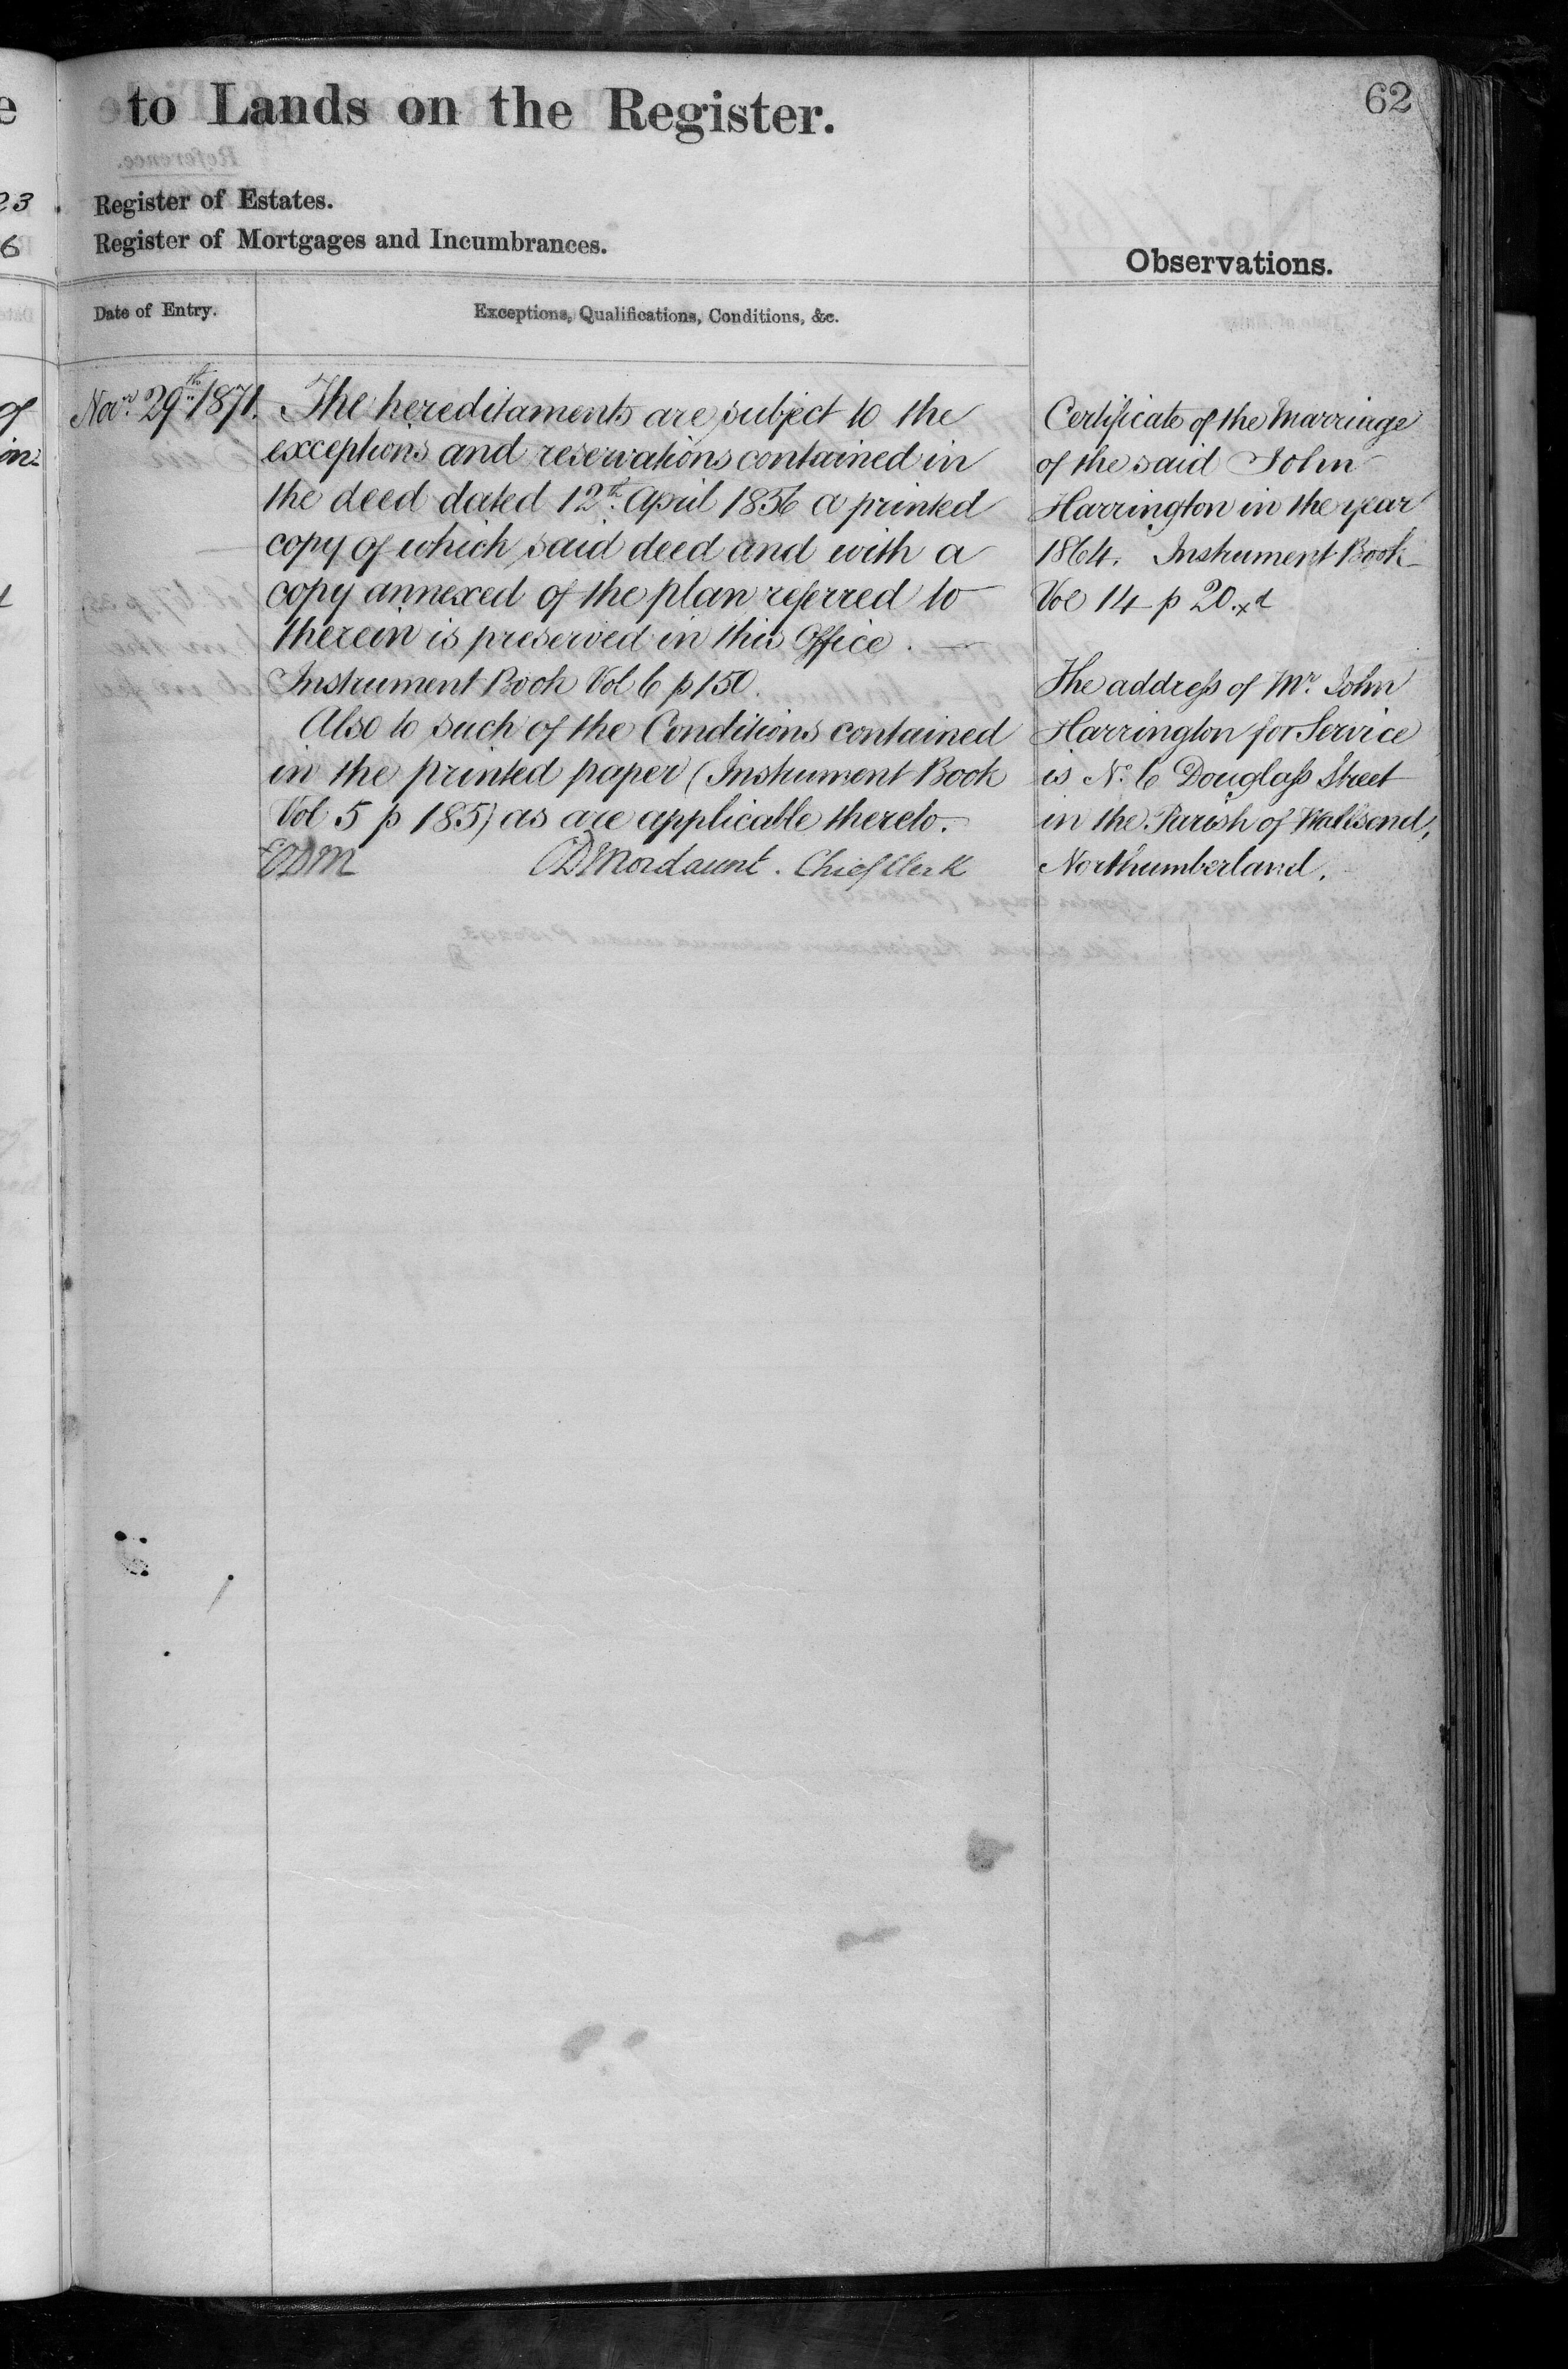 62
to Lands on the Register.
Register of Estates.
Register of Mortgages and Incumbrances.
Observations.
Date of Entry.
Exceptions, Qualifications, Conditions, &c.
Novr. 29th 1871.
The hereditaments are subject to the
exceptions and reservations contained in
the deed dated 12th. April 1856 a printed
copy of which said deed and with a
copy annexed of the plan referred to
therein is preserved in this Office. —
Instrument Book Vol 6 p 150.
Also to such of the Conditions contained
in the printed paper (Instrument Book
Vol 5 p 185) as are applicable thereto. —
EDM
Mordaunt. Chief Clerk
Certificate of the Marriage
of the said John
Harrington in the year
1864. Instrument Book
Vol 14 p 20.
The address of Mr. John
Harrington for Service
is No. 6 Douglass Street
in the Parish of Wallsend,
Northumberland.
23
6
of